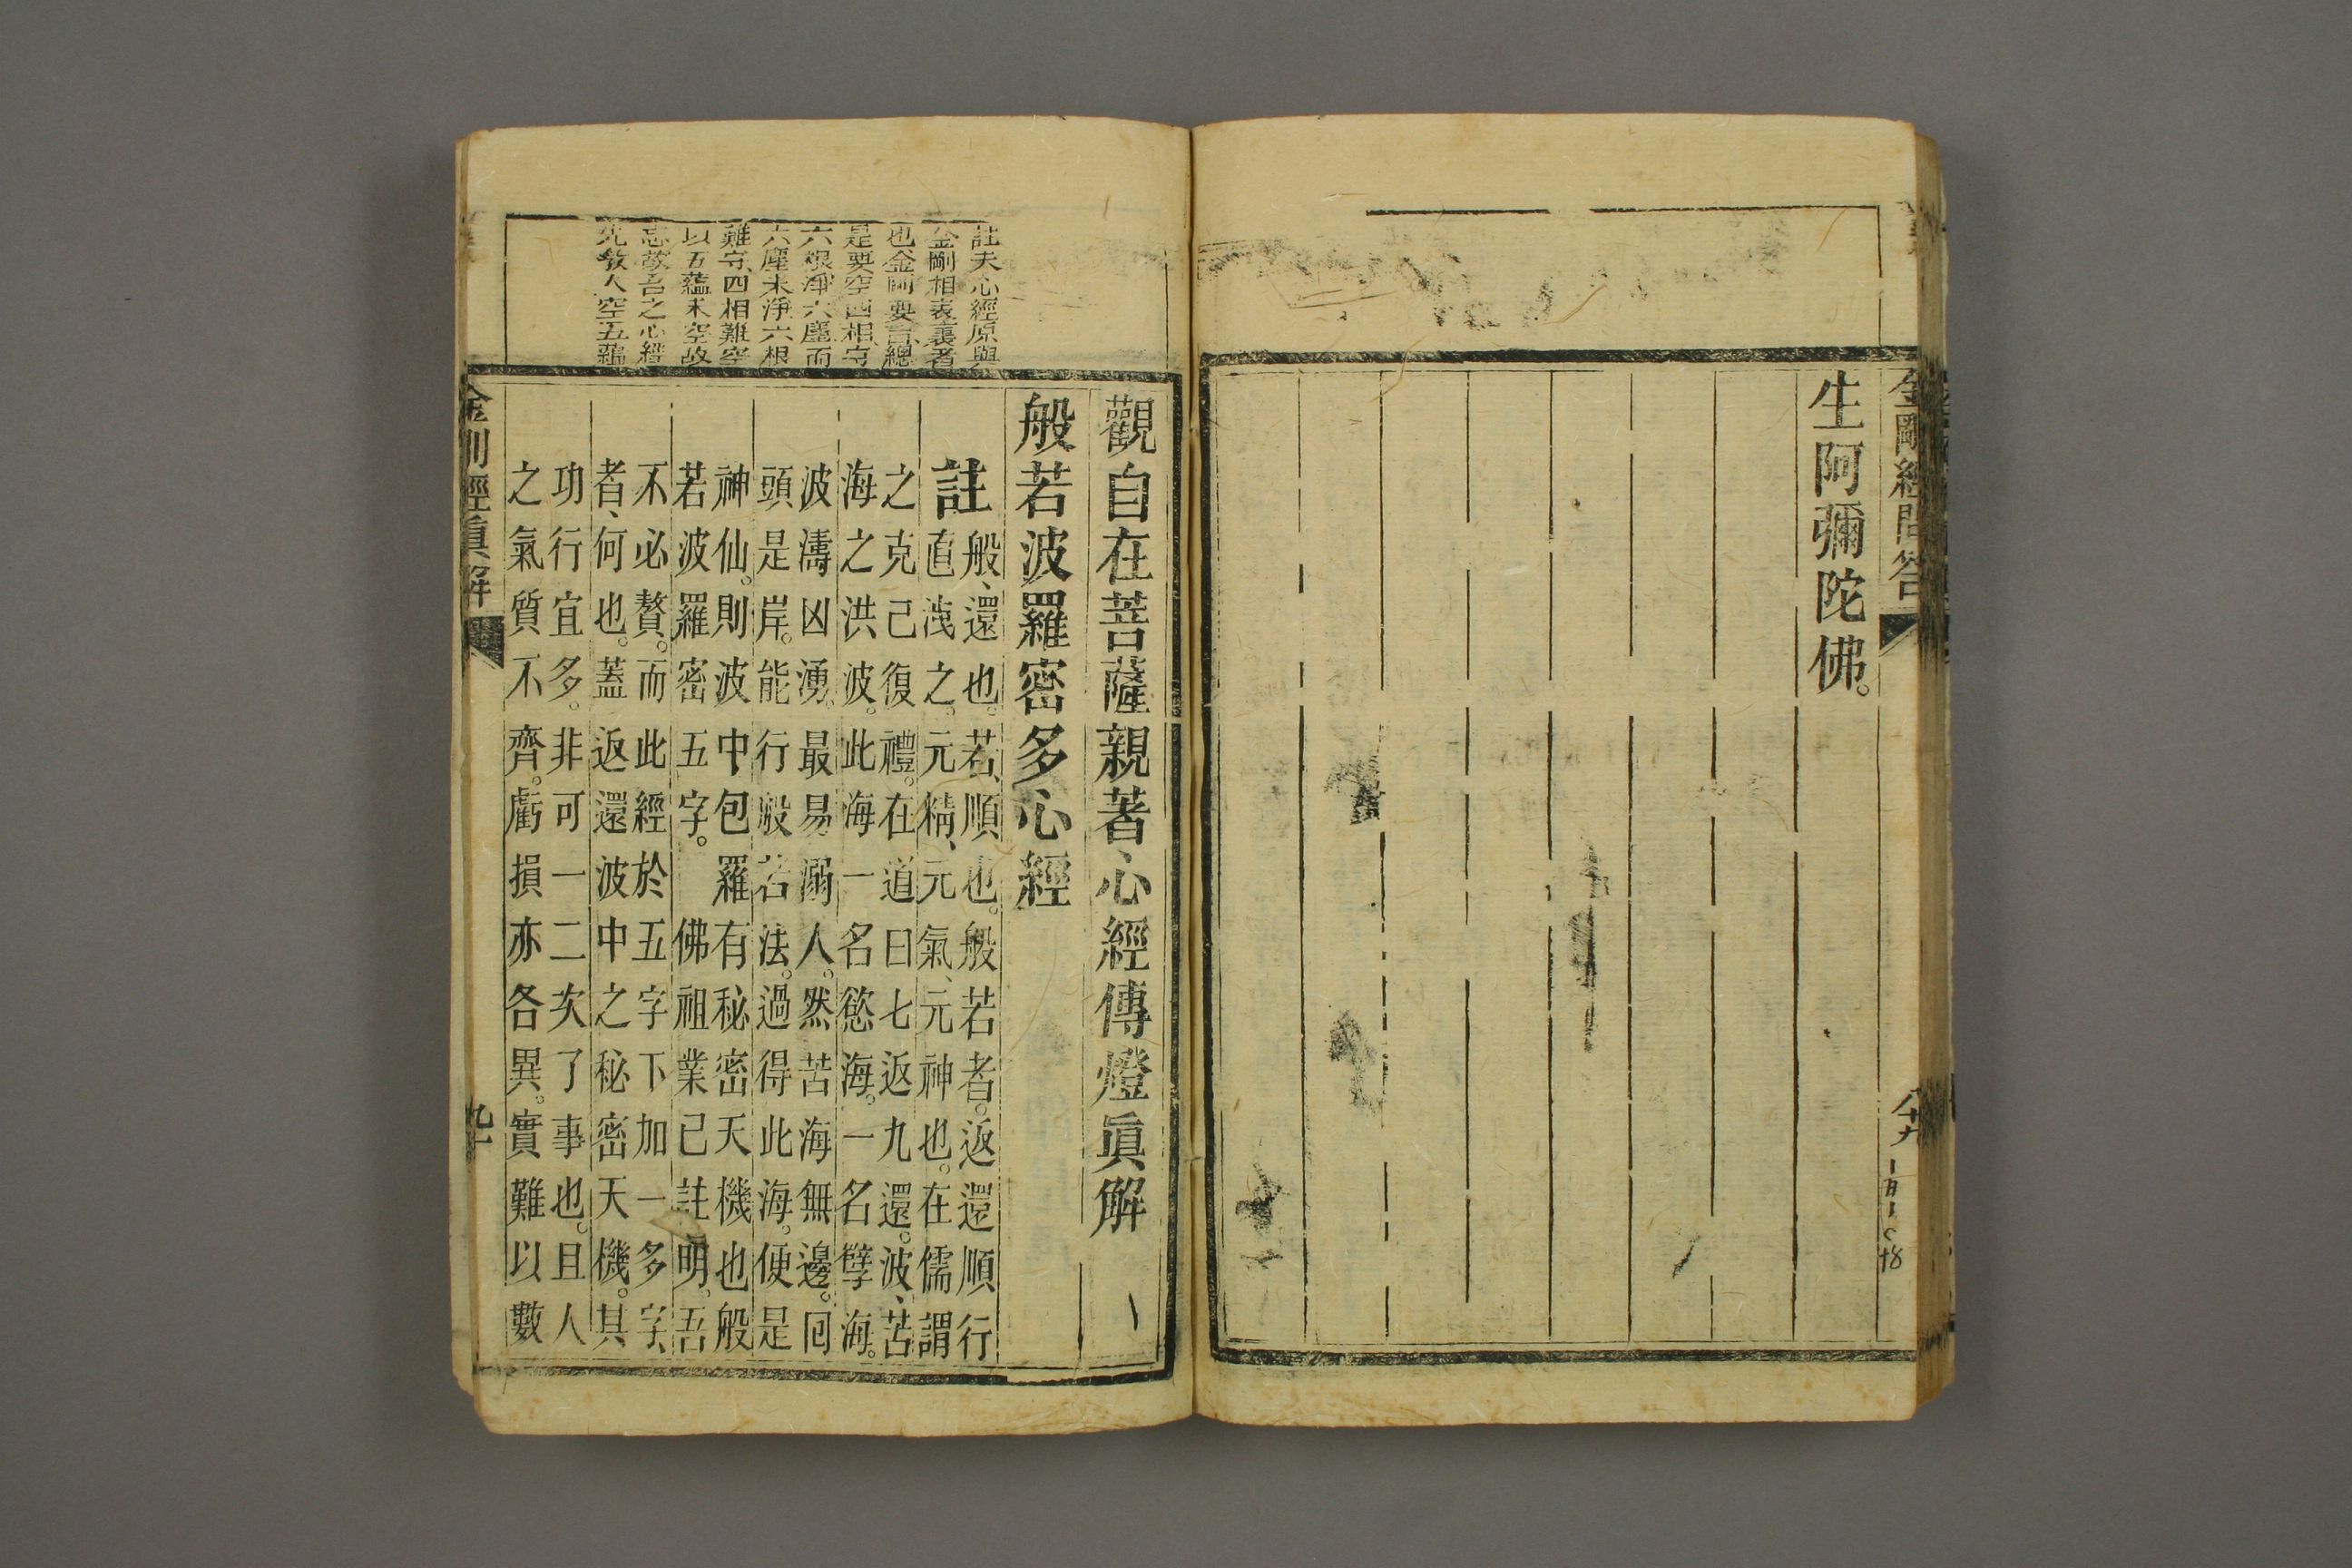 金剛經問答
八十九
生阿彌陀佛。
註夫心經原與
金剛相表裏者
也金剛要言總
是要空四相守
六根淨六塵而
六塵未淨六根
難守四相難空
以五蘊未空故
忘故吾之心經
先教人空五蘊
觀自在菩薩親著心經傳燈眞解
般若波羅密多心經
註
般、還也。若、順也。般若者。返還順行
直洩之。元精、元氣、元神也。在儒謂
之克己復禮。在道曰七返九還。波、苦
海之洪波。此海一名慾海。一名孽海。
波濤凶湧。最易溺人。然苦海無邊。囘
頭是岸。能行般若法。過得此海。便是
神仙。則波中包羅有秘密天機也般
若波羅密五字。佛祖業已註明。吾
不必贅。而此經於五字下加一多字、
者、何也。蓋返還波中之秘密天機。其
功行宜多。非可一二次了事也。且人
之氣質不齊。虧損亦各異。實難以數
金剛經眞解
九十